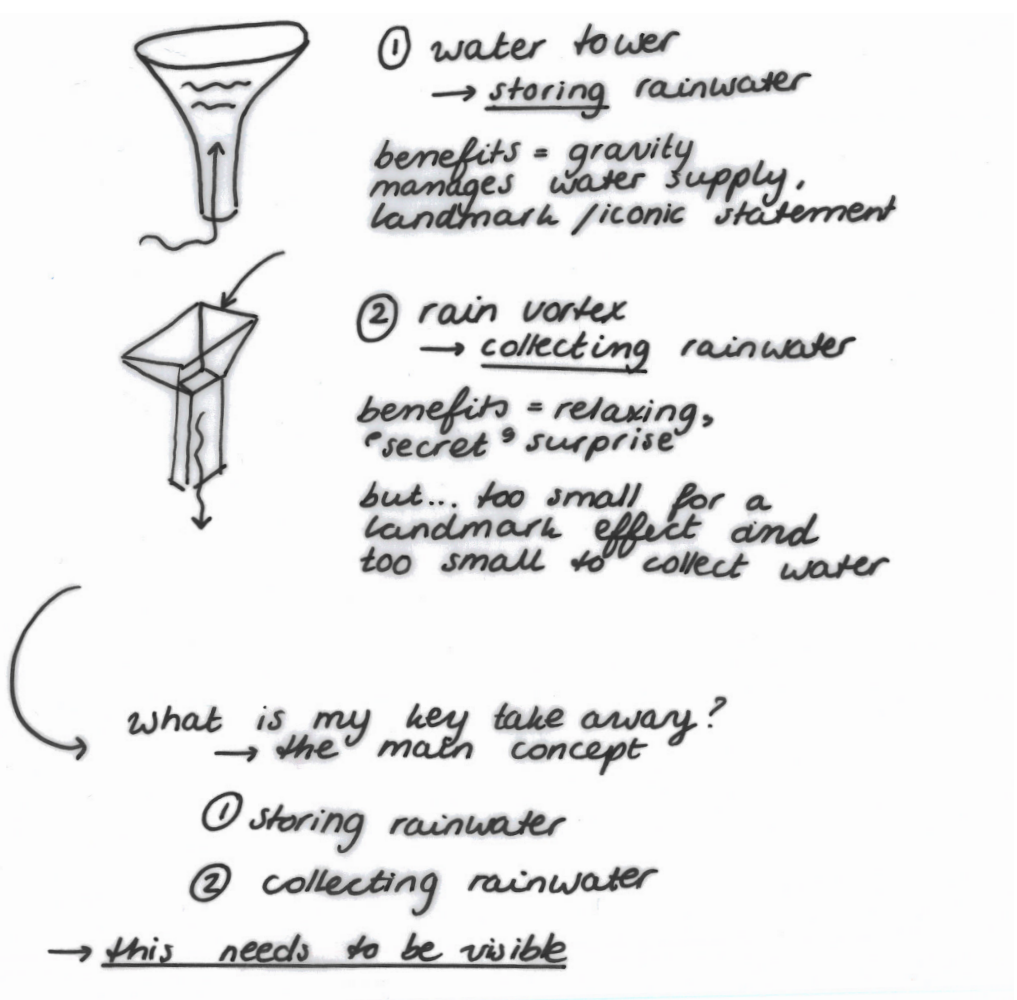 ① water tower
→ storing rainwater
benefits = gravity
manages water supply,
landmark / iconic statement
② rain vortex
→ collecting rainwater
benefits = relaxing,
"secret" surprise
but... too small for a
landmark effect and
too small to collect water
what is my key take away?
→ the main concept
① storing rainwater
② collecting rainwater
→ this needs to be visible